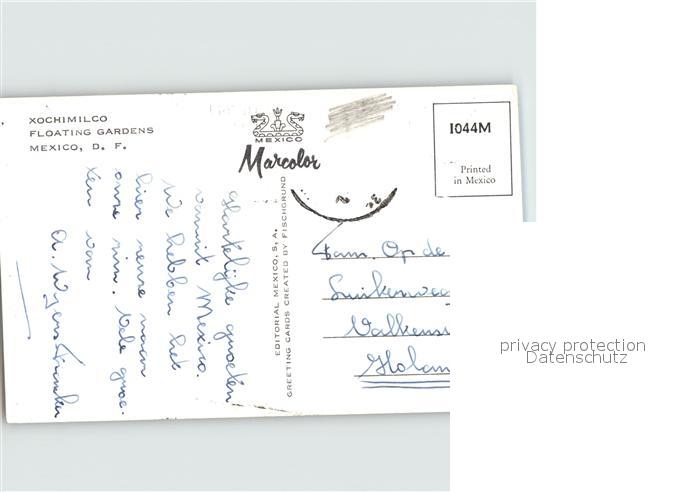 XOCHIMILCO
FLOATING GARDENS
MEXICO, D. F.
MEXICO
Marcolor
1044M
Printed
in Mexico
EDITORIAL MEXICO, S, A.
GREETING CARDS CREATED BY FISCHGRUND
Hartelijke groeten
vanuit Mexico.
We hebben het
hier reuze naar
onze zin. Vele groe-
ten van
Fam. Op de
Valkens
Holan
privacy protection
Datenschutz